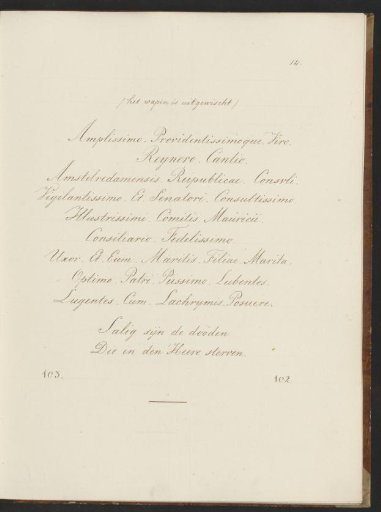 12
(het wapen is uitgewischt)
Amplissimo. Providentissimoque. Viro.
Reynero. Cantio.
Amstelredamensis. Reipublicae. Consvli.
Vigilantissimo. Et. Senatori. Consultissimo.
Illustrissimi. Comitis. Mauricii.
Consiliario. Fidelissimo.
Uxor. Et. Cum. Maritis. Filiae. Marita.
Optimo. Patri. Piissimo. Lubentes.
Lugentes. Cum. Lachrymis. Posuere.
Salig sijn de dooden
Die in den Heere sterven.
103. 102